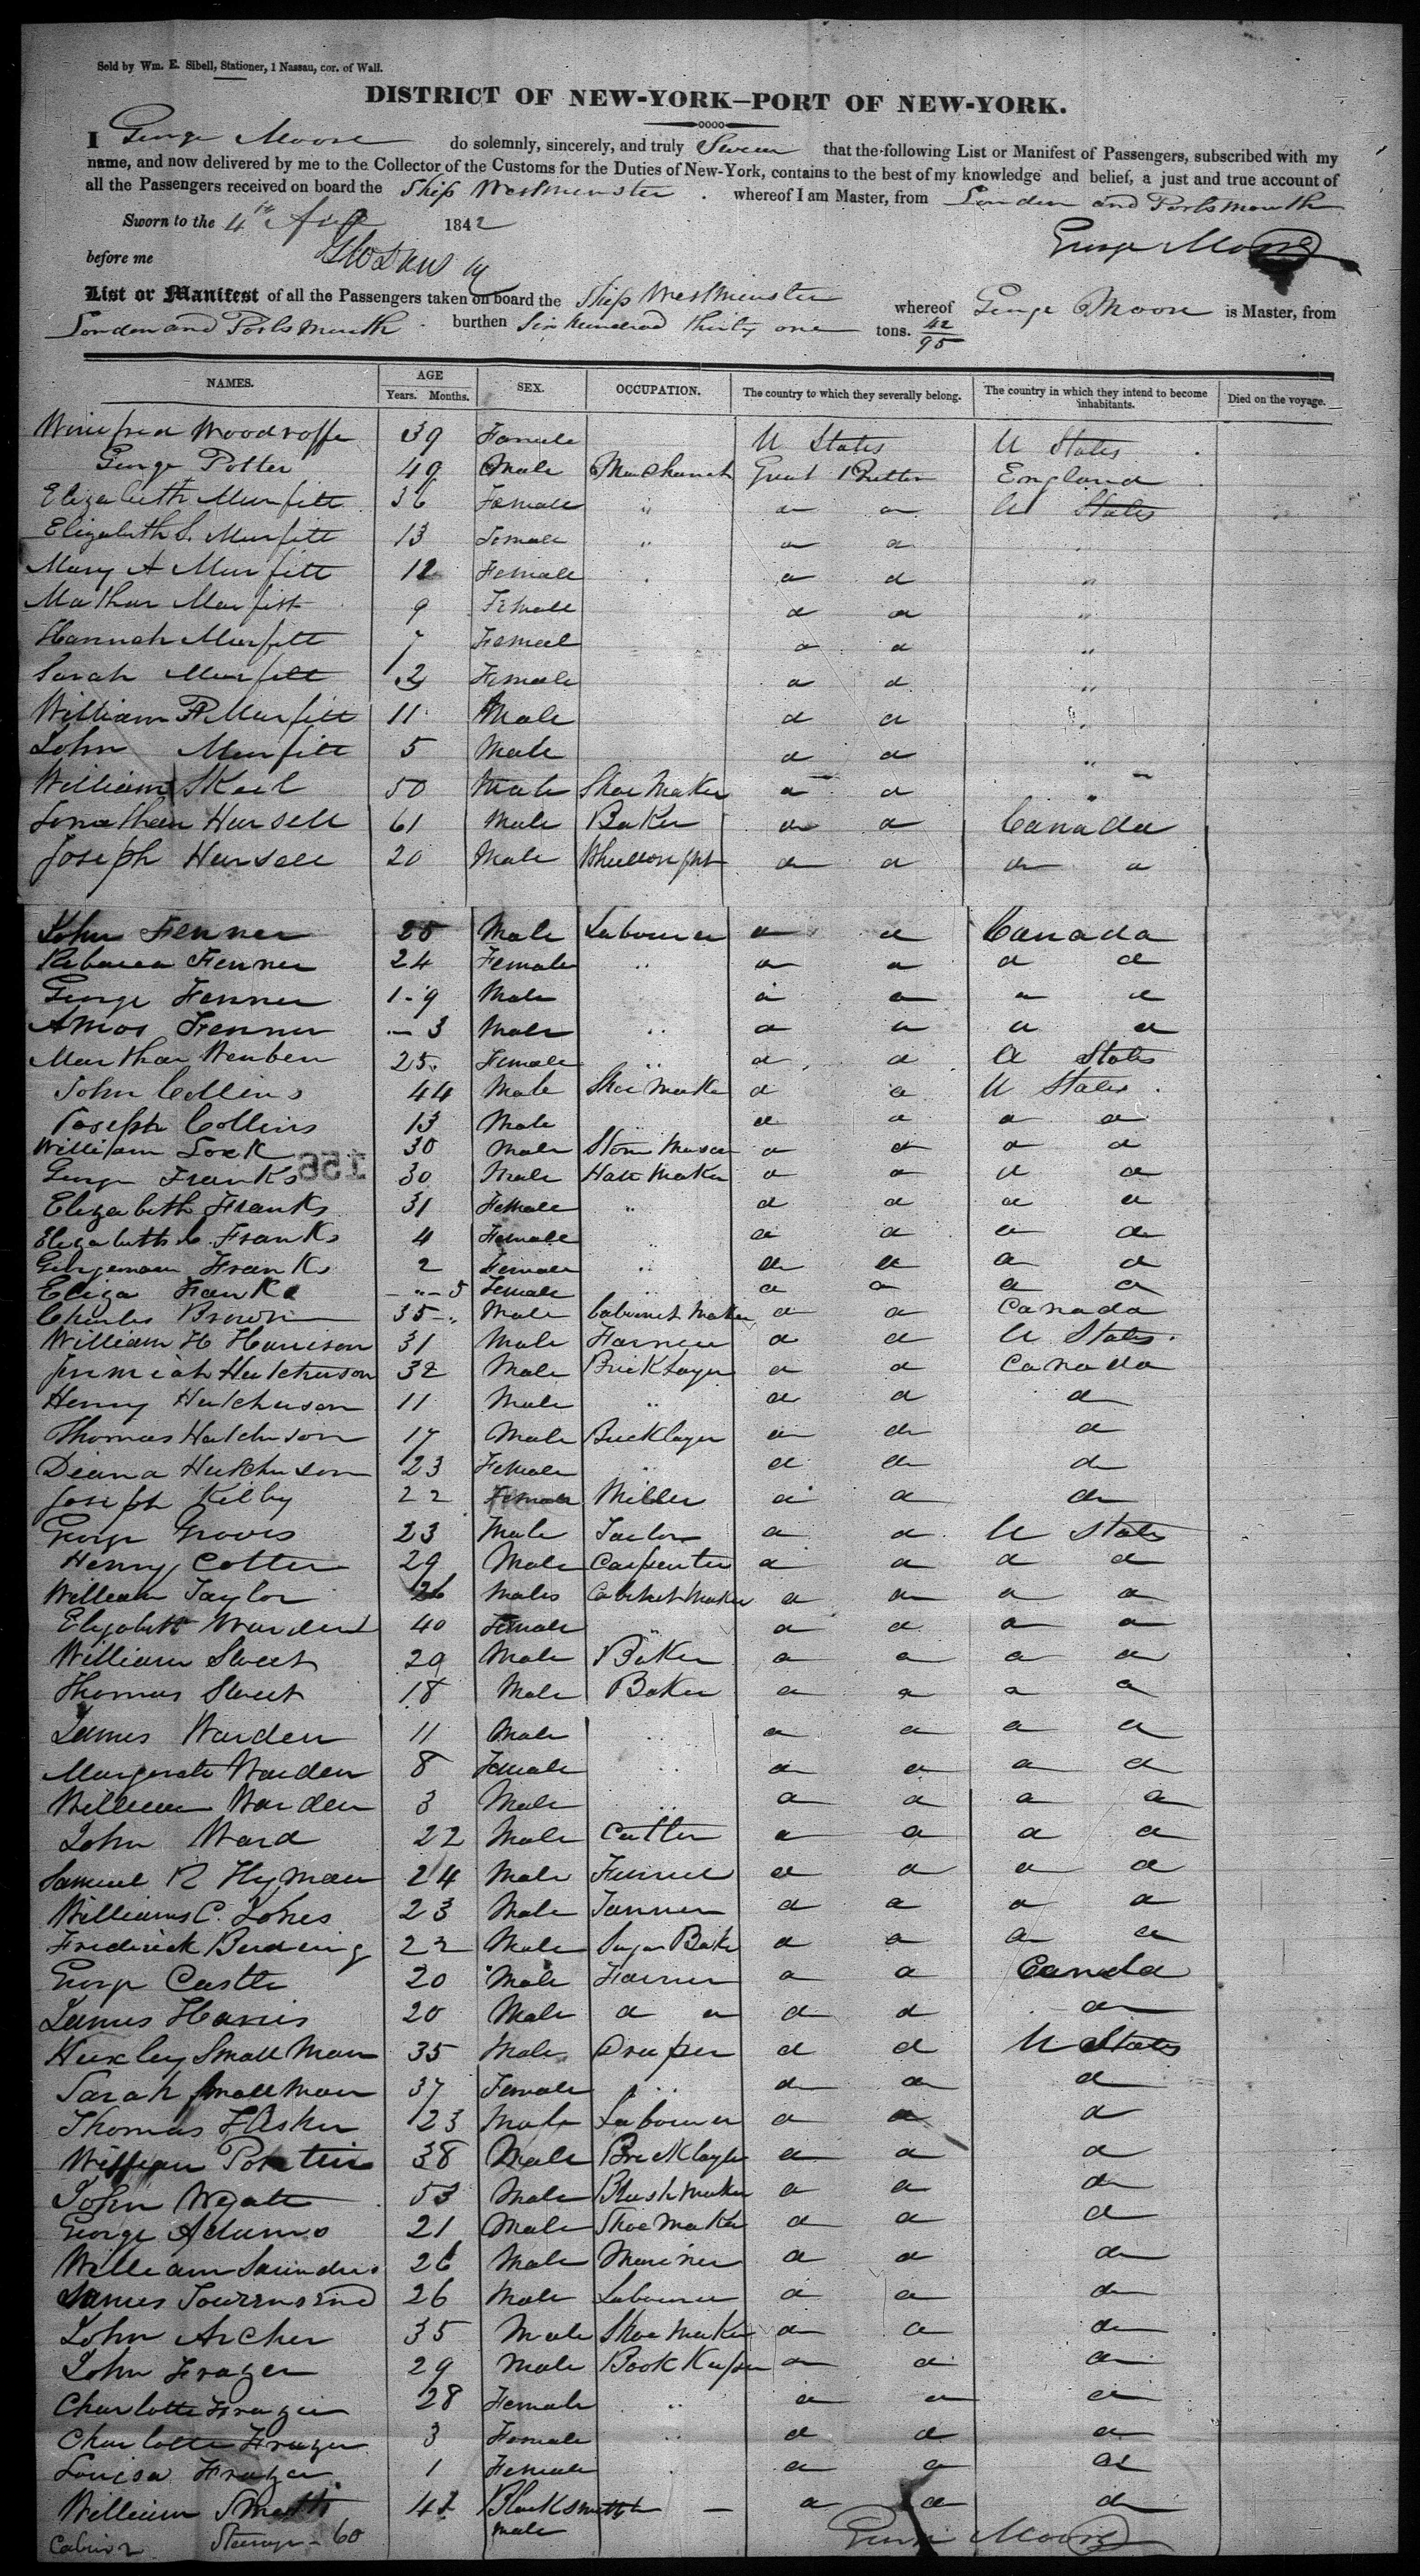 Sold by Wm. E. Sibell, Stationer, 1 Nassau, cor. of Wall.
DISTRICT OF NEW-YORK—PORT OF NEW-YORK.
I George Moore do solemnly, sincerely, and truly Swear that the following List or Manifest of Passengers, subscribed with my
name, and now delivered by me to the Collector of the Customs for the Duties of New-York, contains to the best of my knowledge and belief, a just and true account of
all the Passengers received on board the Ship Westminster . whereof I am Master, from London and Portsmouth
Sworn to the 4th 1842
George Moore
before me
List or Manifest of all the Passengers taken on board the Ship Westminster whereof George Moore is Master, from
London and Portsmouth burthen Six hundred thirty one tons. 42/95
NAMES. AGE Years. Months. SEX. OCCUPATION. The country to which they severally belong. The country in which they intend to become inhabitants. Died on the voyage.
Winifred Woodroffe 39 Female U States U States
George Potter 49 Male Great England
Elizabeth Murfitt 36 Female " a a U States
Elizabeth S. Murfitt 13 Female " a a
Mary A Murfitt 12 Female a a "
Murfitt 9 Female d a "
Hannah Murfitt 7 Female a a "
Sarah Murfitt 2 Female a a "
William Murfitt 11 Male d a
John Murfitt 5 Male a a "
William Skeil 50 Male Shoe Maker a a "
Jonathan Hursell 61 Male Baker a a Canada
Joseph Hursell 20 Male a a a a
John Fenner 25 Male Labourer a a Canada
Rebecca Fenner 24 Female " a a a a
George Fenner 1-9 Male a a a a
Amos Fenner - 3 Male " a a a a
Martha 25 Female " a a U States
John Collins 44 Male Shoe Maker a a U States
Joseph Collins 13 Male a a a a
William Lock 30 Male Stone Mason a a a a
156
George Franks 30 Male Hatt Maker a a a a
Elizabeth Franks 31 Female " a a a a
Elizabeth Franks 4 Female a a a a
Franks 2 Female " a a a a
Eliza Franks - " - 5 Female a a a a
Charles Brown 35 Male Cabinet Maker a a Canada
William H Harrison 31 Male Farmer a a U States
Jeremiah Hutchinson 32 Male Bricklayer a a Canada
Henry Hutchinson 11 Male " a a a
Thomas Hutchinson 17 Male Bricklayer a a a
Diana Hutchinson 23 Female a a a
Joseph Kilby 22 Miller a a a
George Groves 23 Male Taylor a a U States
Henry Cotter 29 Male Carpenter a a a a
William Taylor 26 Male Cabinet Maker a a a a
Elizabeth Warden 40 Female " a a a a
William Sweet 29 Male Baker a a a a
Thomas Sweet 18 Male Baker a a a a
James Warden 11 Male a a a a
Margerate Warden 8 Female a a a a
William Warden 3 Male a a a a
John Ward 22 Male Cutler a a a a
Samuel R Hyman 24 Male a a a a
William C. Jones 23 Male Tanner a a a a
Frederick 22 Male Sugar Baker a a a a
George Castle 20 Male Farmer a a Canada
James Harris 20 Male a a a a a
Huxley Small Man 35 Male Draper a a U States
Sarah Small Man 37 Female a a a
Thomas 23 Male Labourer a a a
William 38 Male Bricklayer a a a
John Wyatt 53 Male Brush Maker a a a
George Adams 21 Male Shoe Maker a a a
William Saunders 26 Male Mariner a a a
James Townsend 26 Male Labourer a a a
John Archer 35 Male Shoe Maker a a a
John Frazer 29 Male Book Keeper a a a
Charlotte Frazer 28 Female " a a a
Charlotte Frazer 3 Female " a a a
Louisa Frazer 1 Female a a a
William Smith 42 Blacksmith - a a a
Cabin 2 Steerage - 60 male George Moore